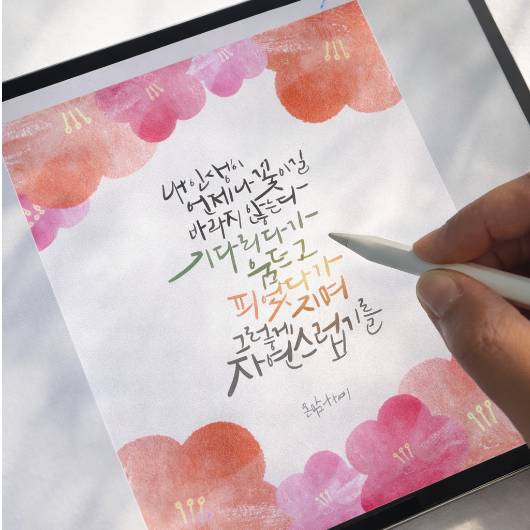 내 인생이
언제나 꽃이길
바라지 않는다
기다리다가
움트고
피었다가
지며
그렇게
자연스럽기를